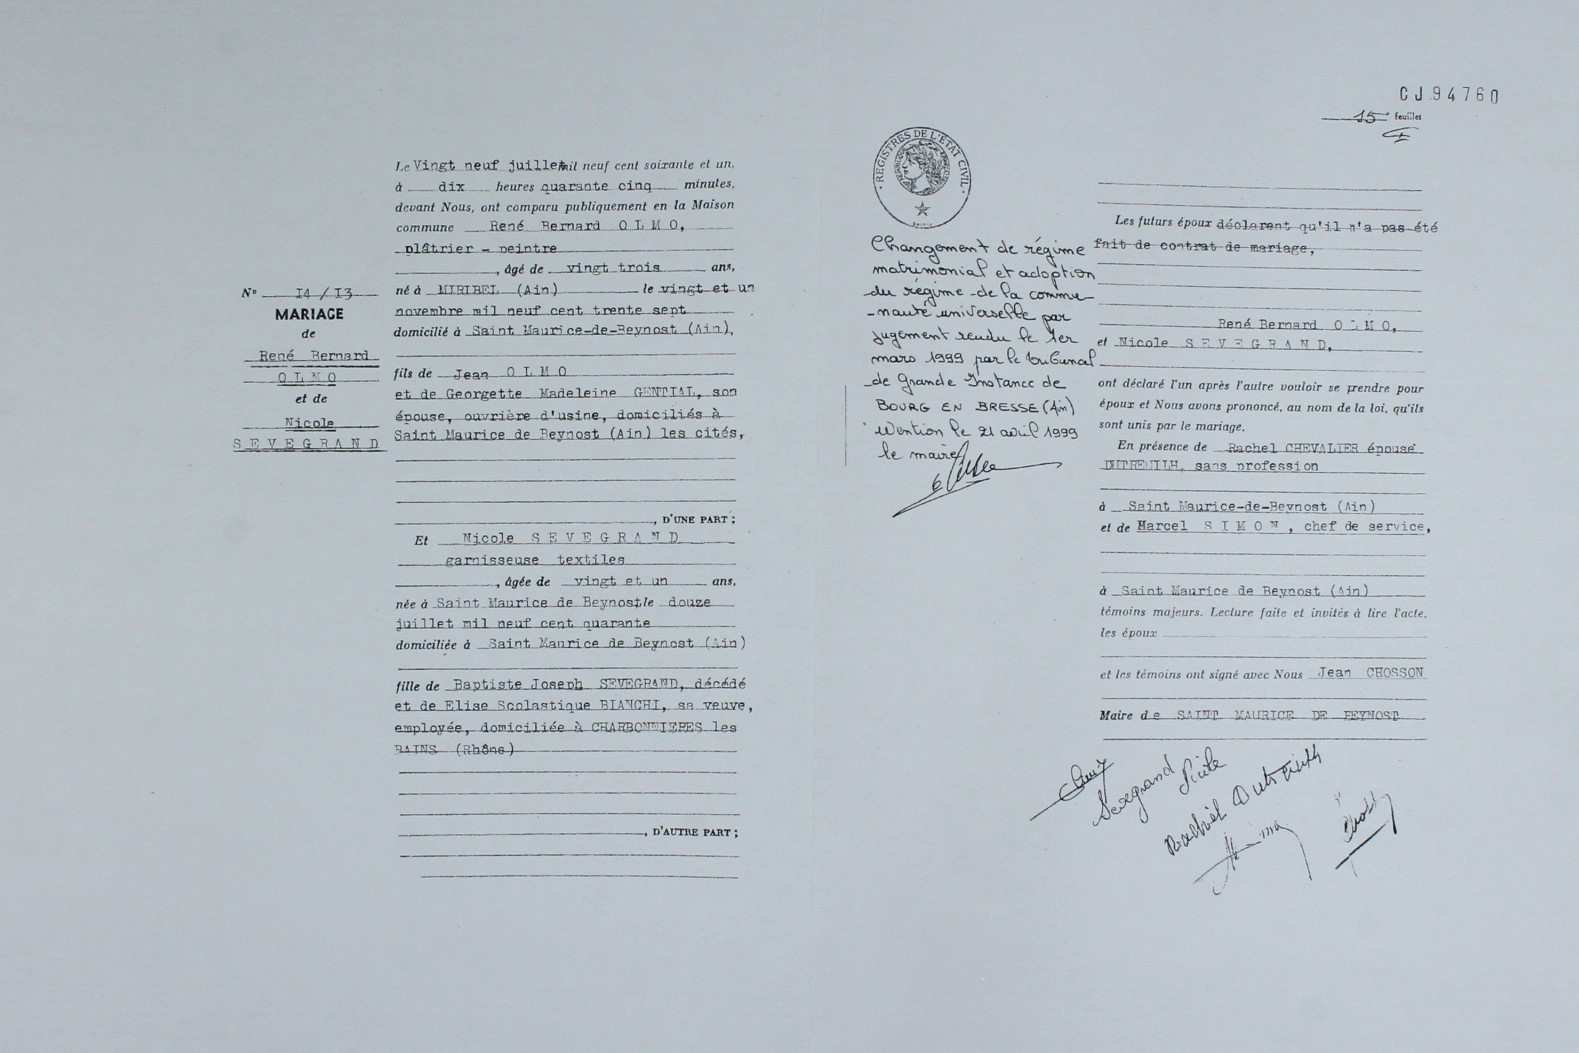 N° 14/13
MARIAGE
de
René Bernard
O L M O
et de
Nicole
S E V E G R A N D
Le Vingt neuf juillet mil neuf cent soixante et un,
à dix heures quarante cinq minutes,
devant Nous, ont comparu publiquement en la Maison
commune René Bernard O L M O,
plâtrier - peintre
, âgé de vingt trois ans,
né à MIRIBEL (Ain) le vingt et un
novembre mil neuf cent trente sept
domicilié à Saint Maurice-de-Beynost (Ain),
fils de Jean O L M O
et de Georgette Madeleine GENTIAL, son
épouse, ouvrière d'usine, domiciliés à
Saint Maurice de Beynost (Ain) les cités,
, D'UNE PART ;
Et Nicole S E V E G R A N D
garnisseuse textiles
, âgée de vingt et un ans,
née à Saint Maurice de Beynost, le douze
juillet mil neuf cent quarante
domiciliée à Saint Maurice de Beynost (Ain)
fille de Baptiste Joseph SEVEGRAND, décédé
et de Elise Scolastique BIANCHI, sa veuve,
employée, domiciliée à CHARBONNIERES les
BAINS (Rhône)
, D'AUTRE PART ;
CJ 94760
15 feuilles
REGISTRES DE L'ETAT CIVIL
Changement de régime
matrimonial et adoption
du régime de la commu-
-nauté universelle par
jugement rendu le 1er
mars 1999 par le tribunal
de Grande Instance de
BOURG EN BRESSE (Ain)
Mention le 21 avril 1999
le maire
Les futurs époux déclarent qu'il n'a pas été
fait de contrat de mariage,
René Bernard O L M O,
et Nicole S E V E G R A N D,
ont déclaré l'un après l'autre vouloir se prendre pour
époux et Nous avons prononcé, au nom de la loi, qu'ils
sont unis par le mariage.
En présence de Rachel CHEVALIER épouse
DUTREUILH, sans profession
à Saint Maurice-de-Beynost (Ain)
et de Marcel S I M O N , chef de service,
à Saint Maurice de Beynost (Ain)
témoins majeurs. Lecture faite et invités à lire l'acte,
les époux
et les témoins ont signé avec Nous Jean CHOSSON
Maire de SAINT MAURICE DE BEYNOST
Sevegrand Nicole
Rachel Dutreuilh